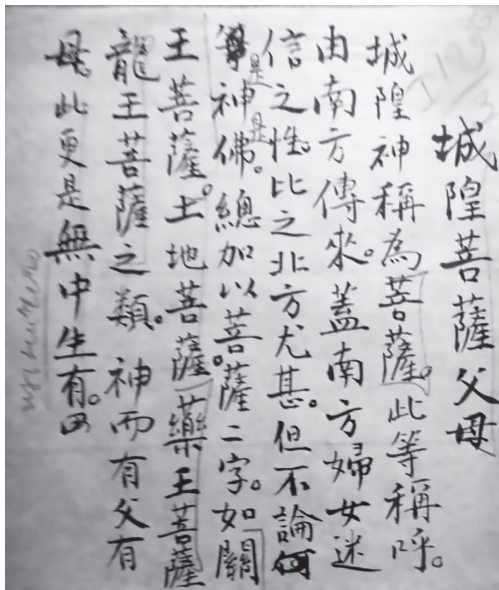 城隍菩薩父母
城隍神稱為菩薩。此等稱呼。
由南方傳來。蓋南方婦女迷
信之性。比之北方尤甚。但不論何
等是神是佛。總加以菩薩二字。如關
王菩薩。土地菩薩 藥王菩薩
龍王菩薩之類。神而有父有
母。此更是無中生有。